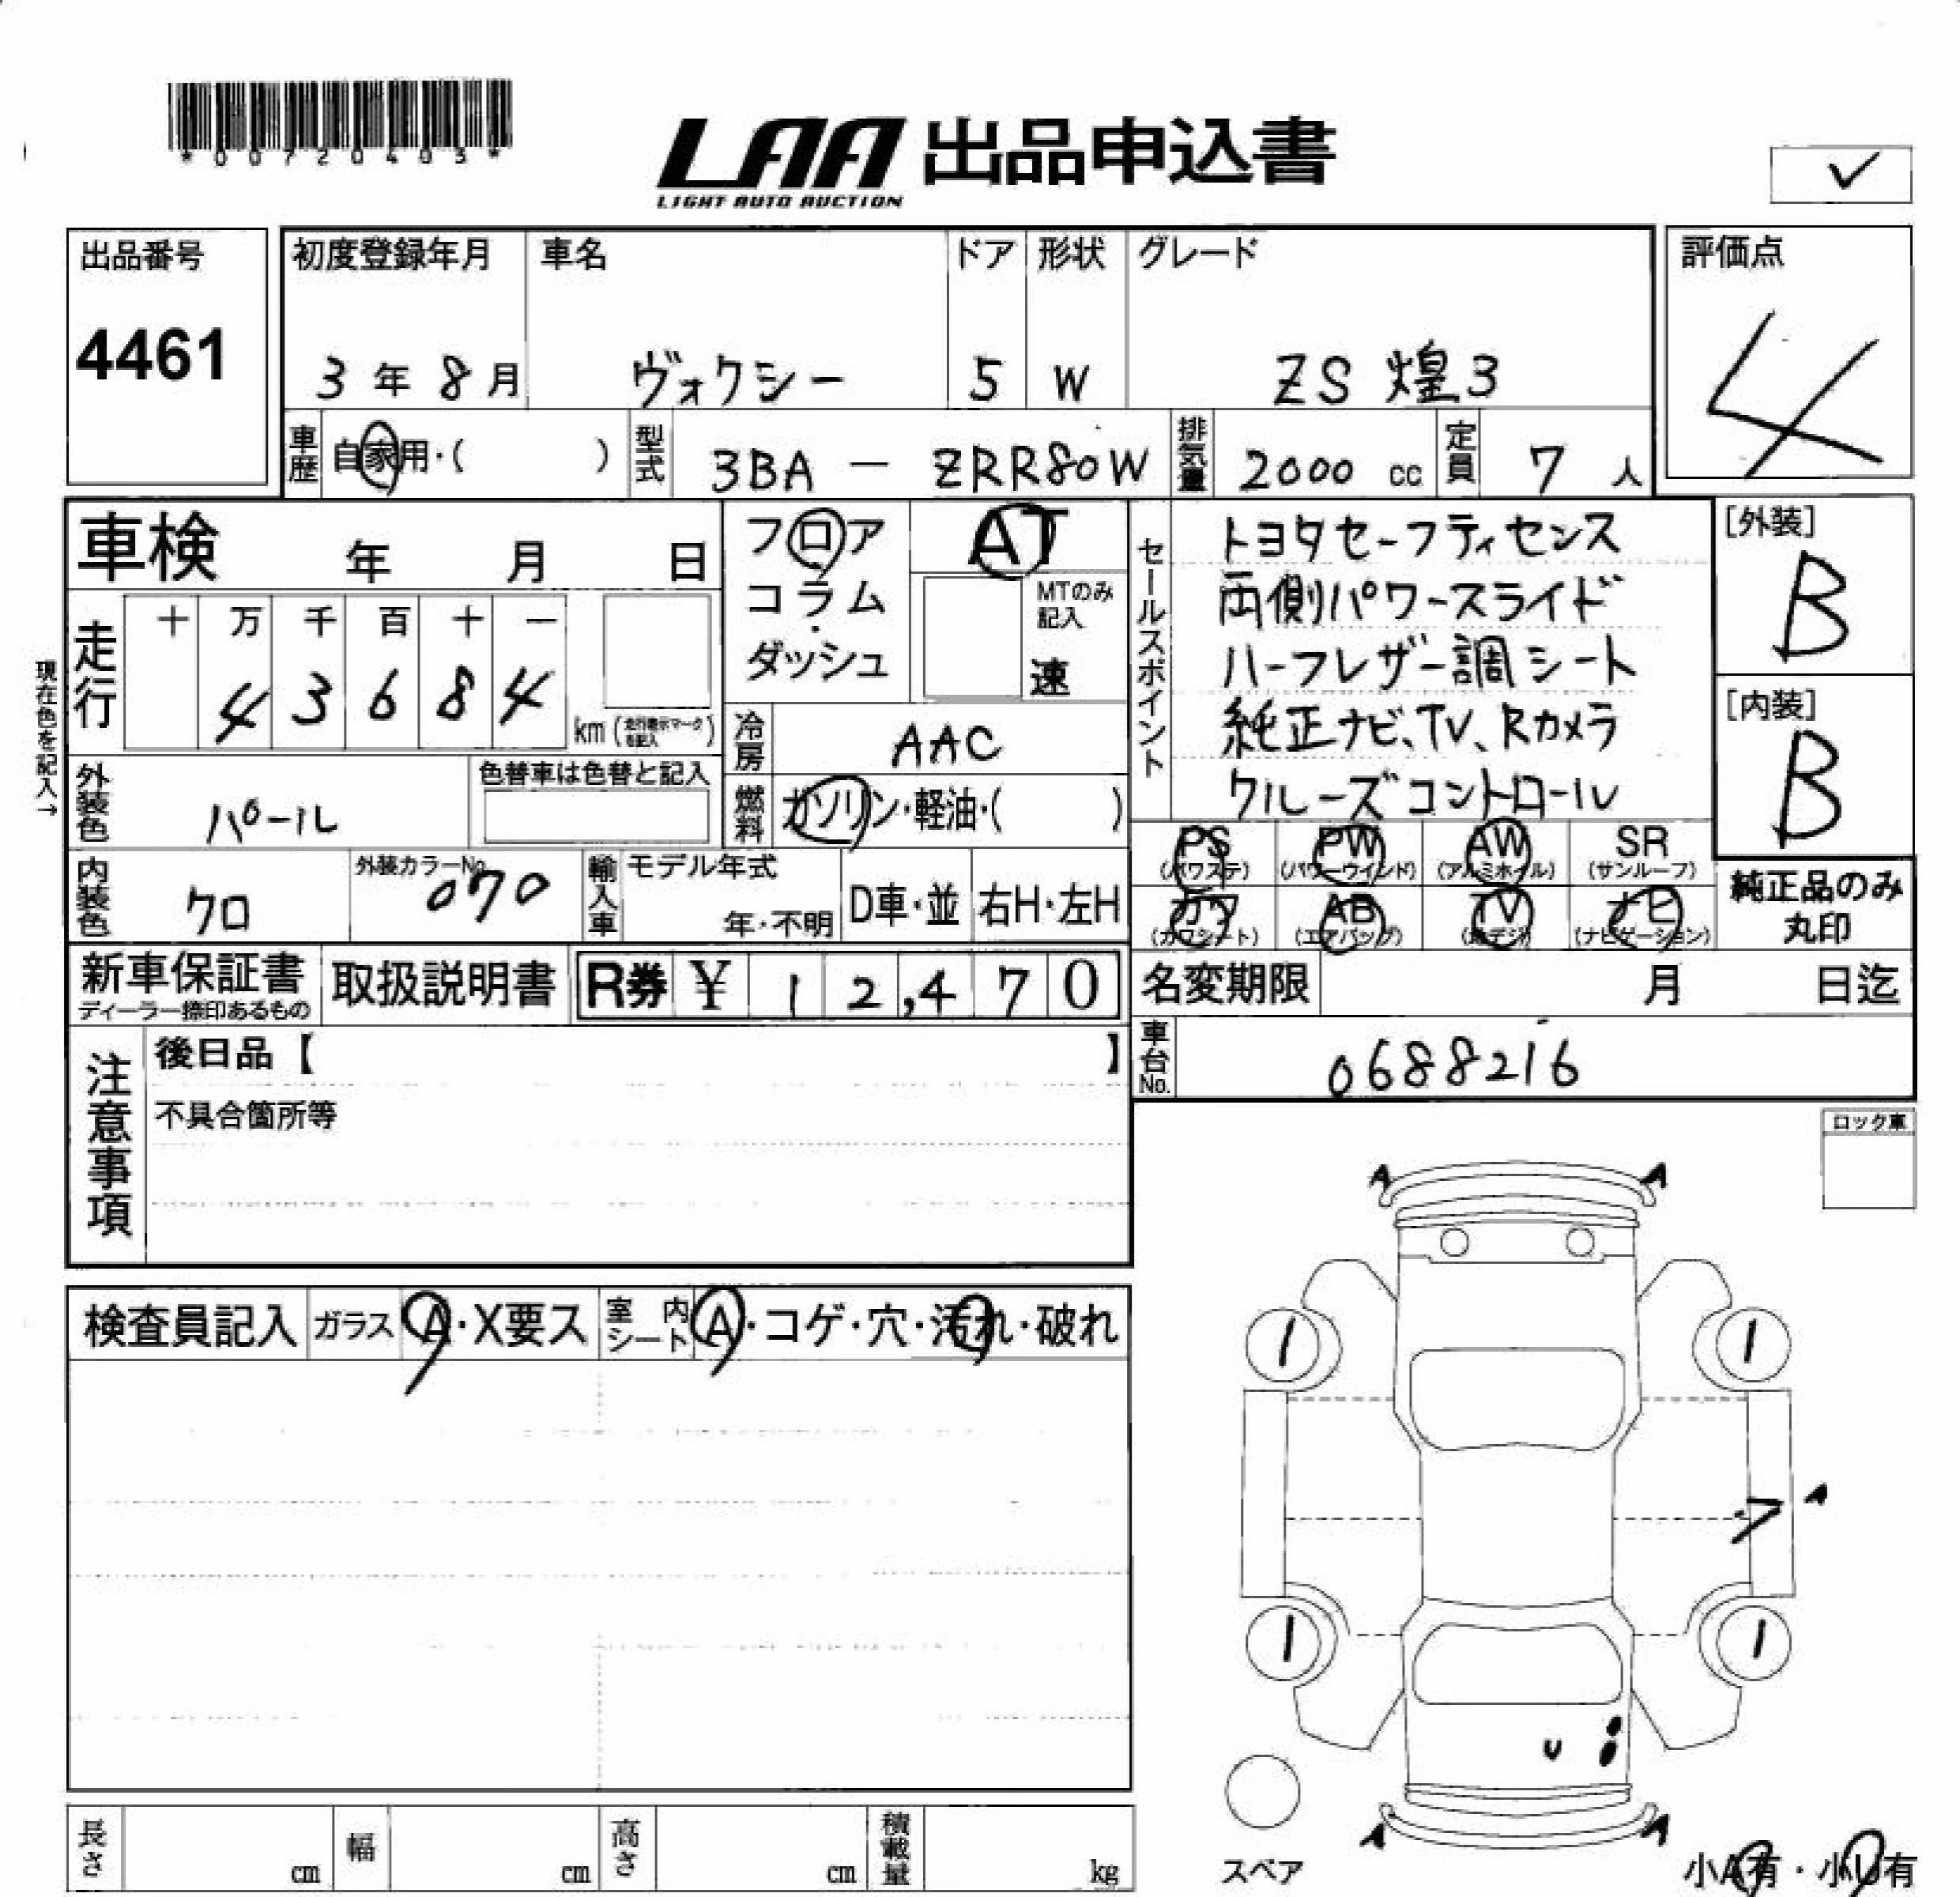 *00720405*
LAA 出品申込書
LIGHT AUTO AUCTION
✓
出品番号 初度登録年月 車名 ドア 形状 グレード 評価点
4461 3年8月 ヴォクシー 5 W ZS 煌3 4
車歴 自家用・( ) 型式 3BA - ZRR80W 排気量 2000 cc 定員 7 人
車検 年 月 日
フロア AT
コラム・
ダッシュ
MTのみ記入
速
セールスポイント
トヨタセーフティセンス
両側パワースライド
ハーフレザー調シート
純正ナビ、TV、Rカメラ
クルーズコントロール
[外装]
B
[内装]
B
現在色を記入→
走行 十 万 千 百 十 一
4 3 6 8 4
km (走行表示マークを記入)
冷房 AAC
外装色 パール 色替車は色替と記入
燃料 ガソリン・軽油・( )
PS (パワステ) PW (パワーウインド) AW (アルミホイル) SR (サンルーフ)
カワ (カワシート) AB (エアバッグ) TV (地デジ) ナビ (ナビゲーション)
純正品のみ
丸印
内装色 クロ 外装カラーNo. 070 輸入車 モデル年式 年・不明 D車・並 右H・左H
新車保証書 取扱説明書 R券 ¥ 12,470
ディーラー捺印あるもの
名変期限 月 日迄
車台No. 0688216
注意事項
後日品【 】
不具合箇所等
ロック車
検査員記入 ガラス A・X要ス 室内シート A・コゲ・穴・汚れ・破れ
A A
1 1
A
1 1
U
A A
スペア
小A有・小U有
長さ cm 幅 cm 高さ cm 積載量 kg